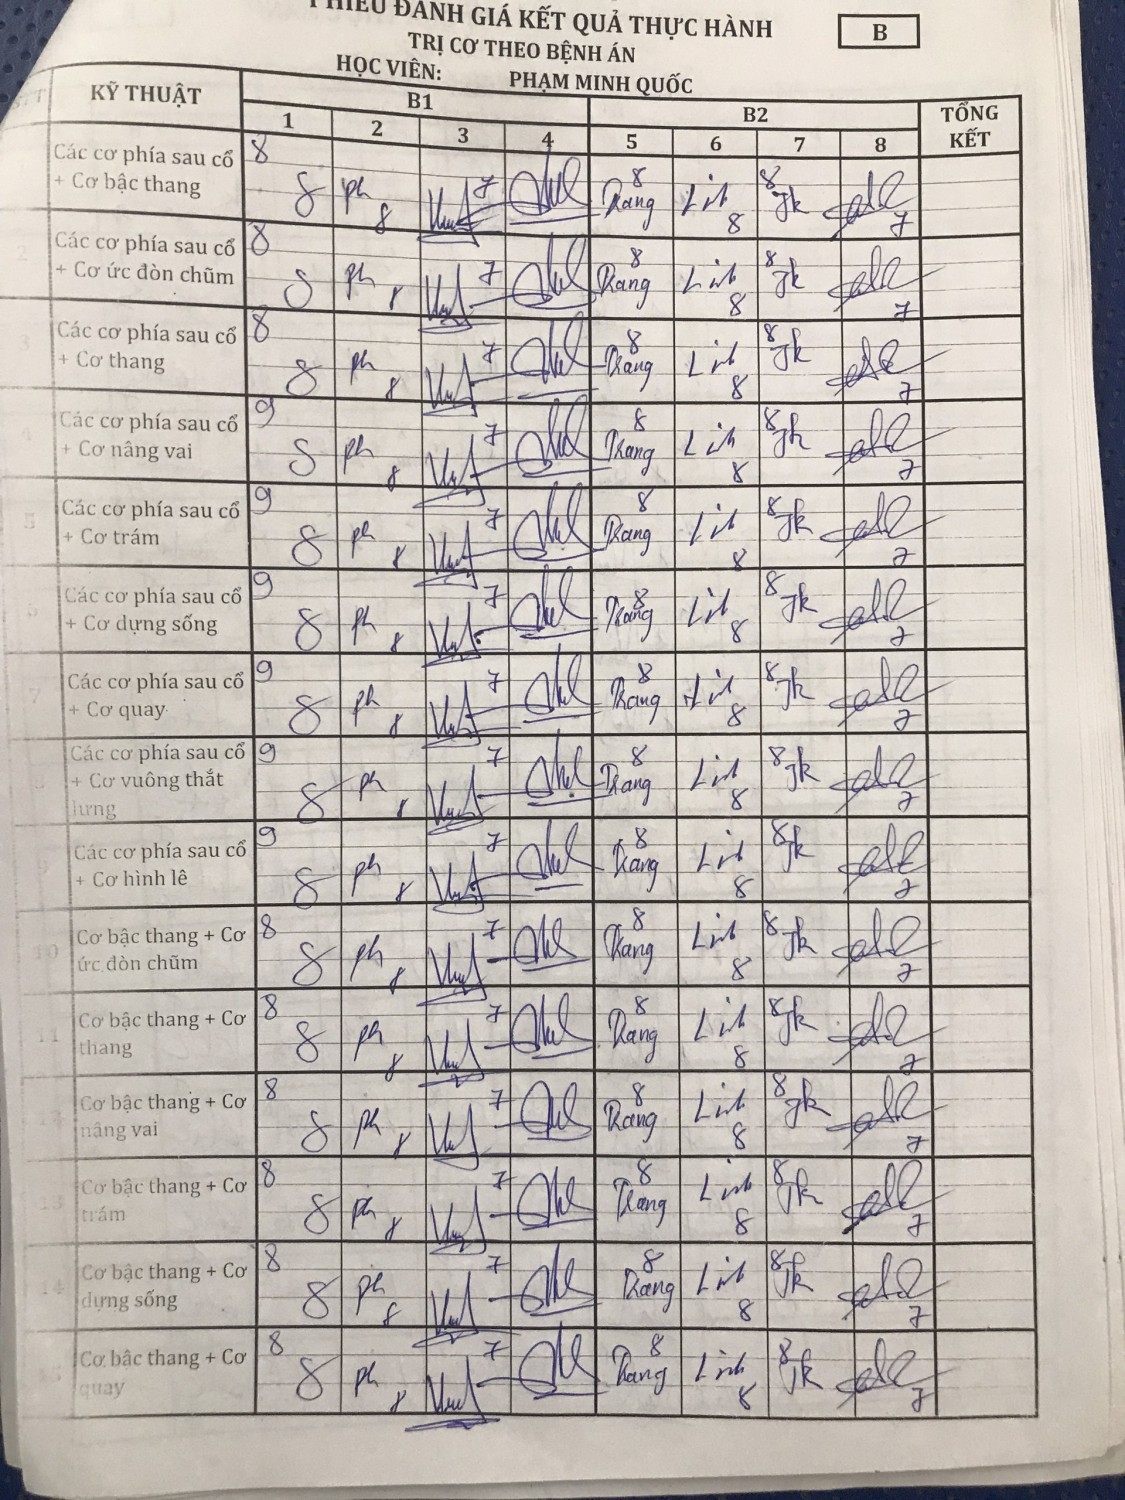 PHIẾU ĐÁNH GIÁ KẾT QUẢ THỰC HÀNH
B
TRỊ CƠ THEO BỆNH ÁN
HỌC VIÊN: PHẠM MINH QUỐC
KỸ THUẬT B1 B2 TỔNG KẾT
1 2 3 4 5 6 7 8
Các cơ phía sau cổ
+ Cơ bậc thang
8 8 ph 8 7 8 Trang Linh 8 8 7
2
Các cơ phía sau cổ
+ Cơ ức đòn chũm
8 8 ph 8 7 8 Trang Linh 8 8 7
3
Các cơ phía sau cổ
+ Cơ thang
8 8 ph 8 7 8 Trang Linh 8 8 7
4
Các cơ phía sau cổ
+ Cơ nâng vai
9 8 ph 8 7 8 Trang Linh 8 8 7
5
Các cơ phía sau cổ
+ Cơ trám
9 8 ph 8 7 8 Trang Linh 8 8 7
6
Các cơ phía sau cổ
+ Cơ dựng sống
9 8 ph 8 7 8 Trang Linh 8 8 7
7
Các cơ phía sau cổ
+ Cơ quay
9 8 ph 8 7 8 Trang Linh 8 8 7
Các cơ phía sau cổ
+ Cơ vuông thắt
lưng
9 8 ph 8 7 8 Trang Linh 8 8 7
Các cơ phía sau cổ
+ Cơ hình lê
9 8 ph 8 7 8 Trang Linh 8 8 7
10
Cơ bậc thang + Cơ
ức đòn chũm
8 8 ph 8 7 8 Trang Linh 8 8 7
11
Cơ bậc thang + Cơ
thang
8 8 ph 8 7 8 Trang Linh 8 8 7
12
Cơ bậc thang + Cơ
nâng vai
8 8 ph 8 7 8 Trang Linh 8 8 7
13
Cơ bậc thang + Cơ
trám
8 8 ph 8 7 8 Trang Linh 8 8 7
14
Cơ bậc thang + Cơ
dựng sống
8 8 ph 8 7 8 Trang Linh 8 8 7
Cơ bậc thang + Cơ
quay
8 8 ph 8 7 8 Trang Linh 8 8 7